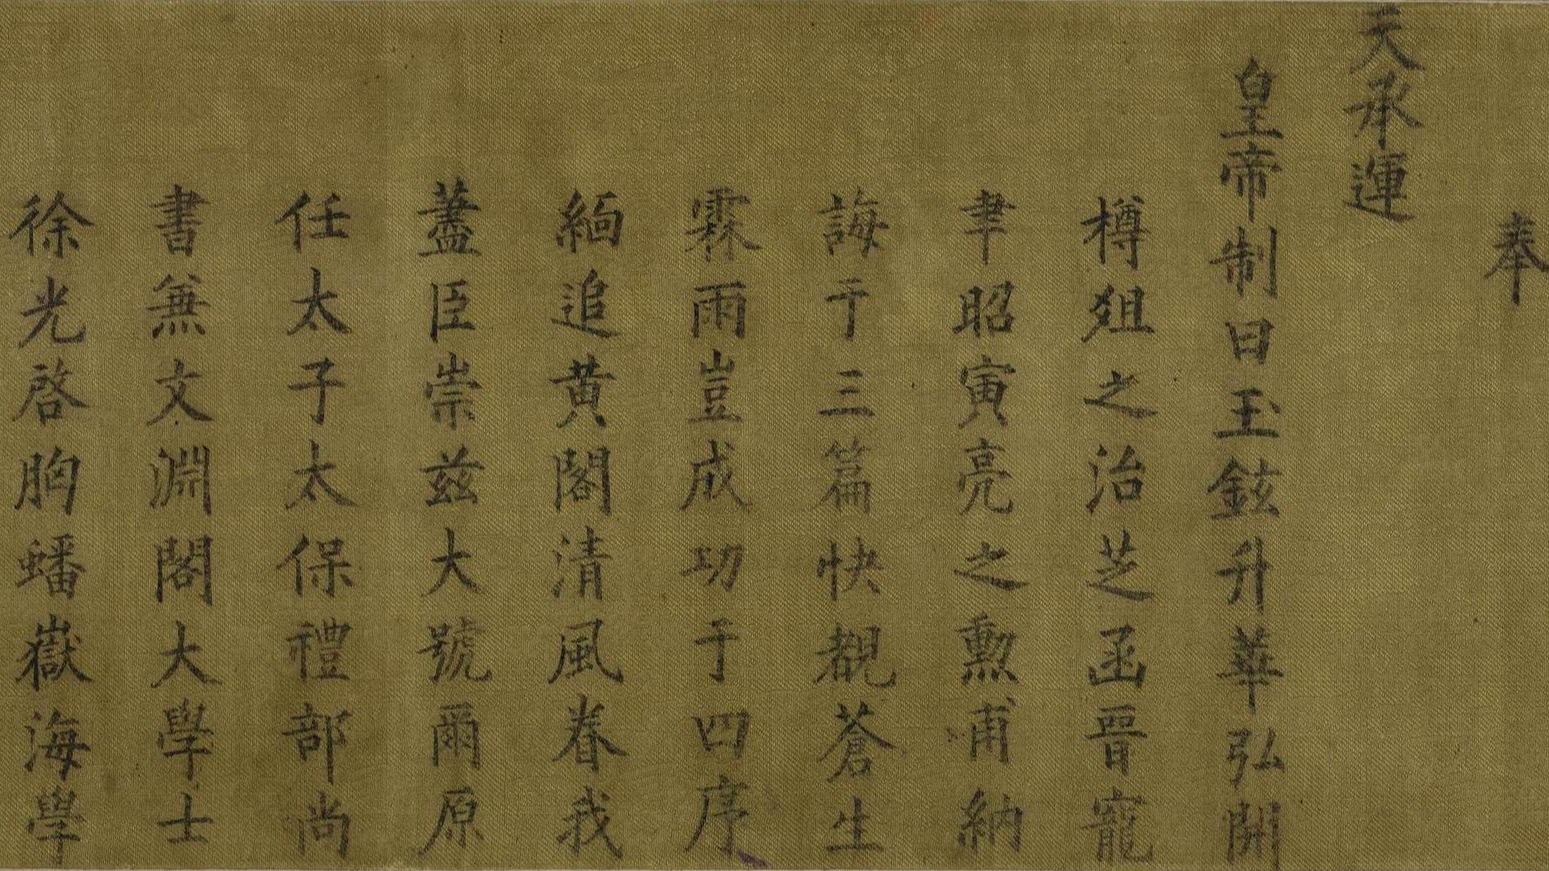 奉
天承運
皇帝制曰玉鉉升華弘開
樽俎之治芝函晉寵
聿昭寅亮之勳甫納
誨于三篇快覩蒼生
霖雨豈成功于四序
緬追黃閣清風眷我
藎臣崇茲大號爾原
任太子太保禮部尚
書兼文淵閣大學士
徐光啓胸蟠嶽海學